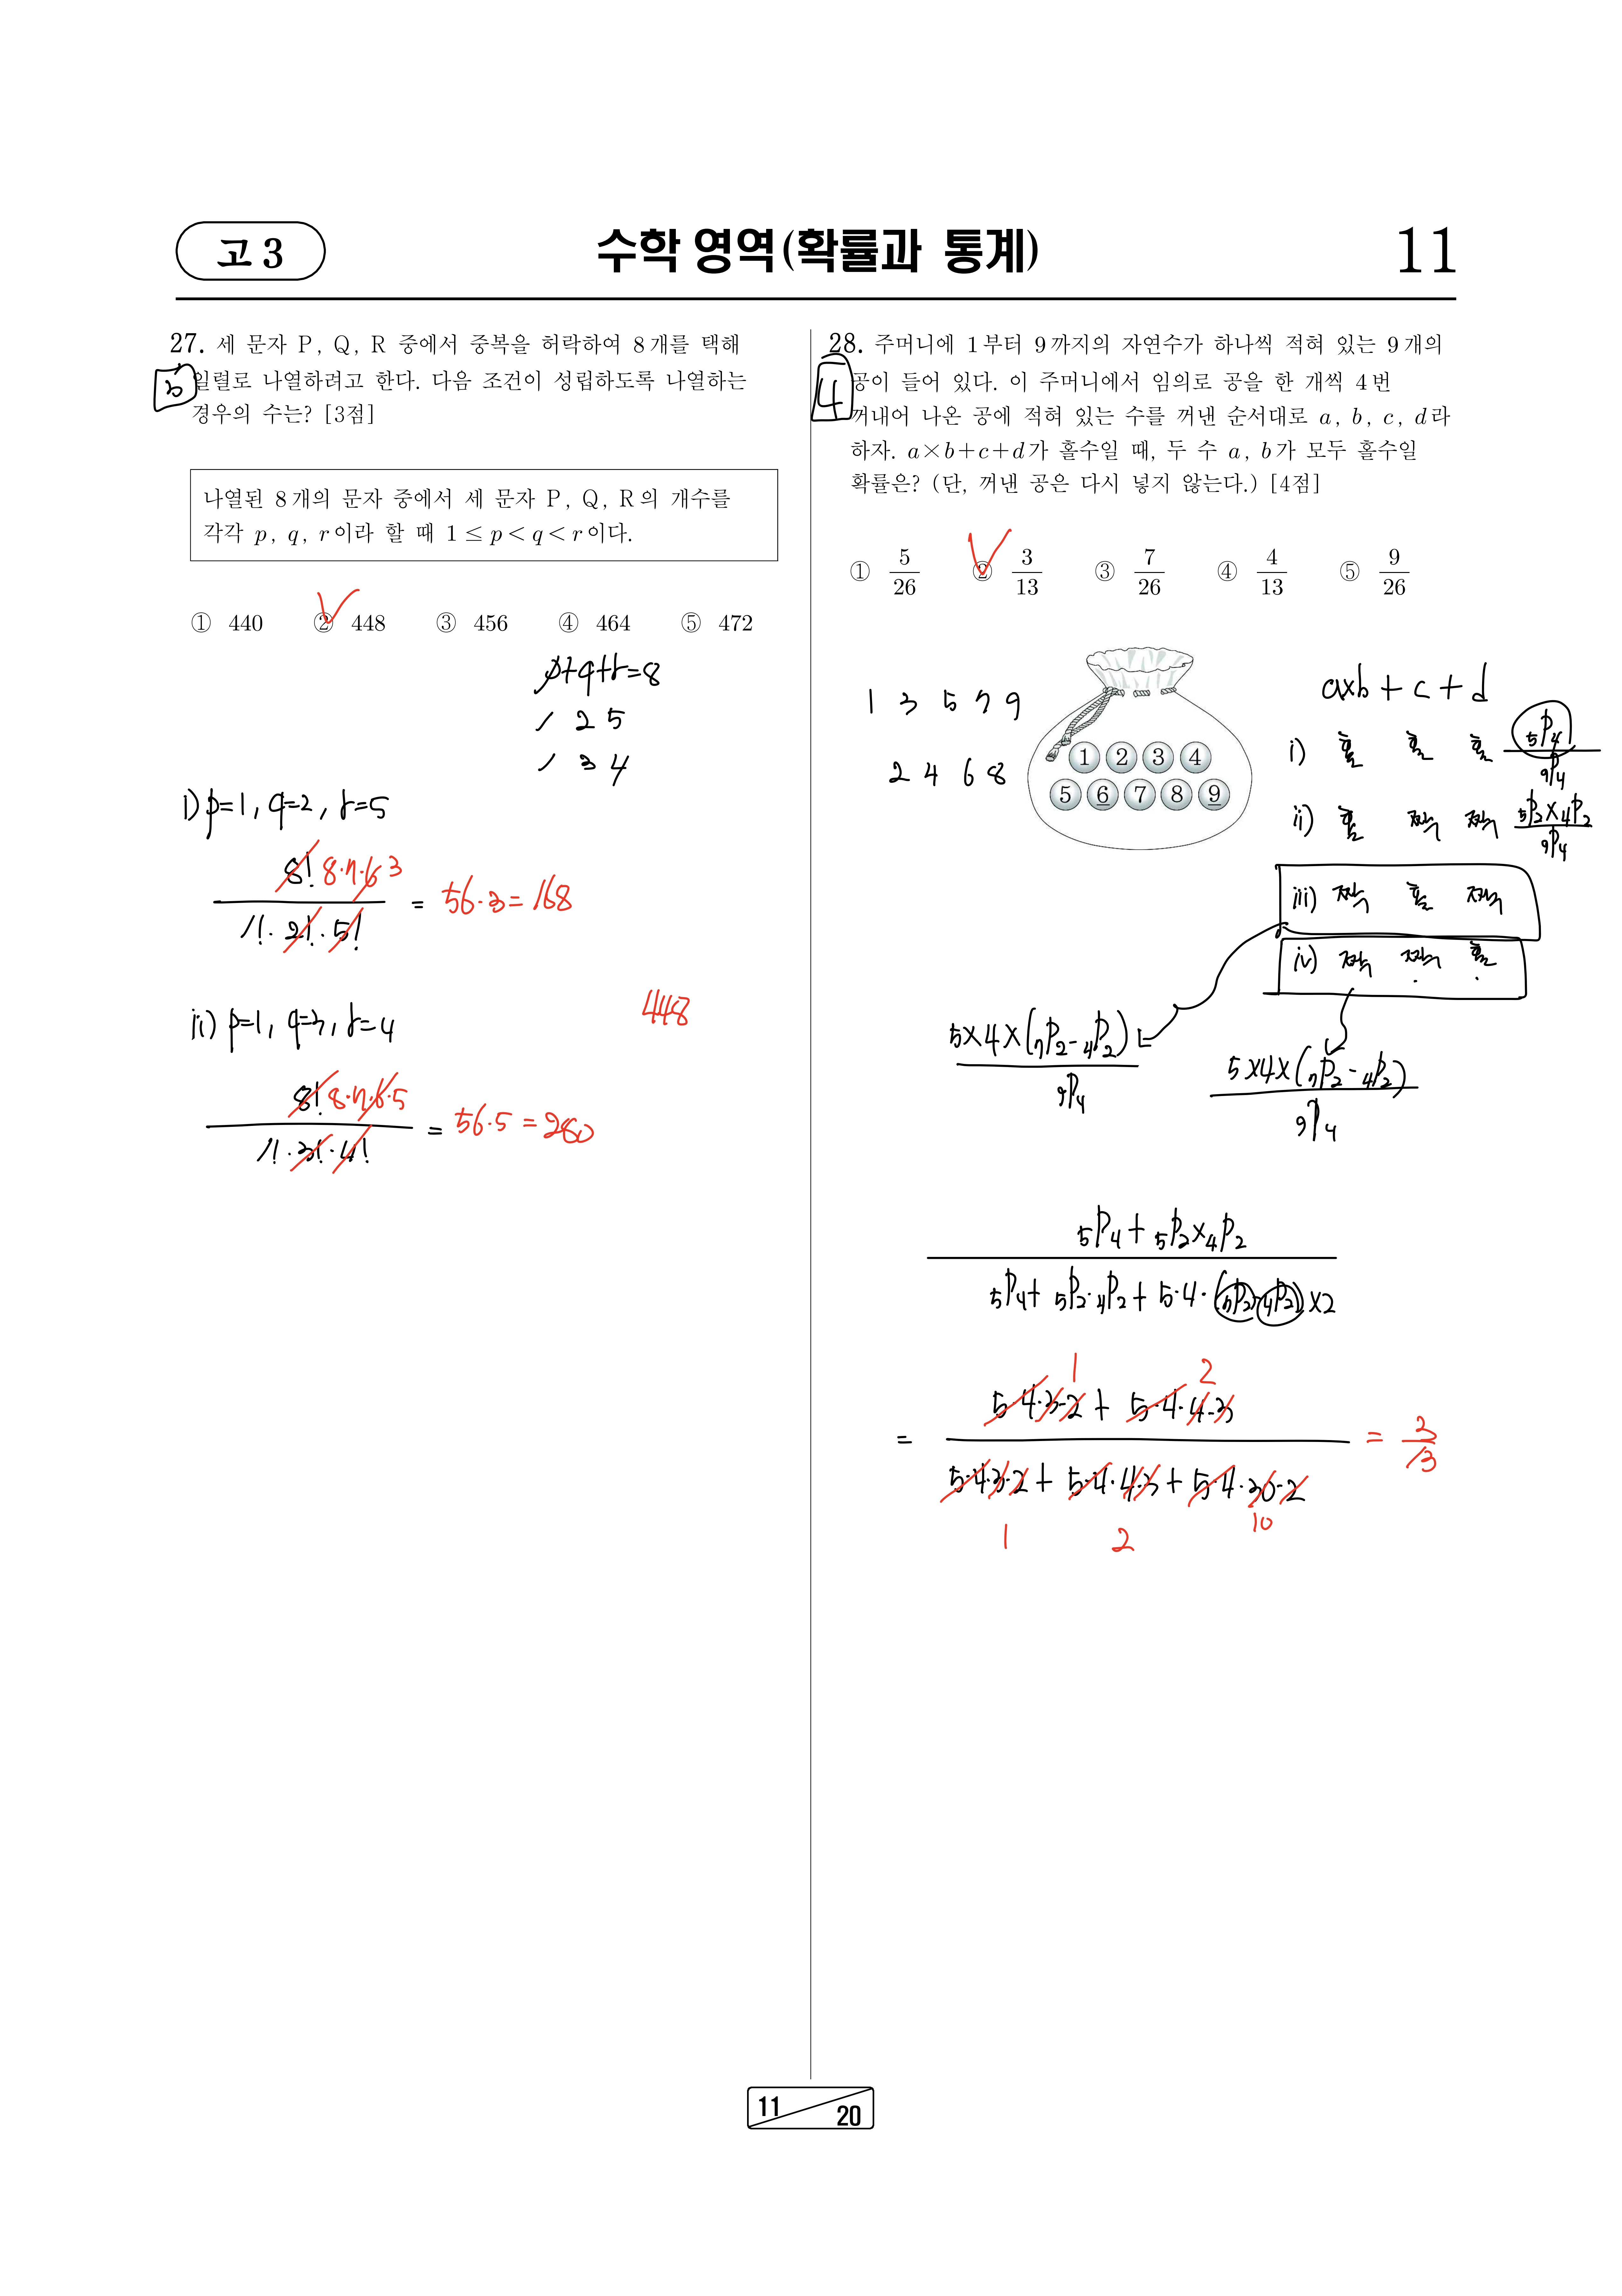 고 3
수학 영역(확률과 통계)
11
27. 세 문자 P, Q, R 중에서 중복을 허락하여 8개를 택해
일렬로 나열하려고 한다. 다음 조건이 성립하도록 나열하는
경우의 수는? [3점]
나열된 8개의 문자 중에서 세 문자 P, Q, R의 개수를
각각 p, q, r이라 할 때 1 ≤ p < q < r이다.
① 440 ② 448 ③ 456 ④ 464 ⑤ 472
p+q+r=8
1 2 5
1 3 4
i) p=1, q=2, r=5
8! 8·7·6 3
1!·2!·5!
= 56·3 = 168
448
ii) p=1, q=3, r=4
8! 8·7·6·5
1!·3!·4!
= 56·5 = 280
28. 주머니에 1부터 9까지의 자연수가 하나씩 적혀 있는 9개의
4
공이 들어 있다. 이 주머니에서 임의로 공을 한 개씩 4번
꺼내어 나온 공에 적혀 있는 수를 꺼낸 순서대로 a, b, c, d라
하자. a×b+c+d가 홀수일 때, 두 수 a, b가 모두 홀수일
확률은? (단, 꺼낸 공은 다시 넣지 않는다.) [4점]
① 5/26 ② 3/13 ③ 7/26 ④ 4/13 ⑤ 9/26
1 3 5 7 9
2 4 6 8
1 2 3 4
5 6 7 8 9
a×b + c + d
i) 홀 홀 홀 5P4/9P4
ii) 홀 짝 짝 5P2×4P2/9P4
iii) 짝 홀 짝
iv) 짝 짝 홀
5×4×(7P2-4P2)
9P4
5×4×(7P2-4P2)
9P4
5P4 + 5P2×4P2
5P4 + 5P2·4P2 + 5·4·(7P2-4P2)×2
1 2
5·4·3·2 + 5·4·4·3
=
5·4·3·2 + 5·4·4·3 + 5·4·30·2
= 3/13
1 2 10
11
20